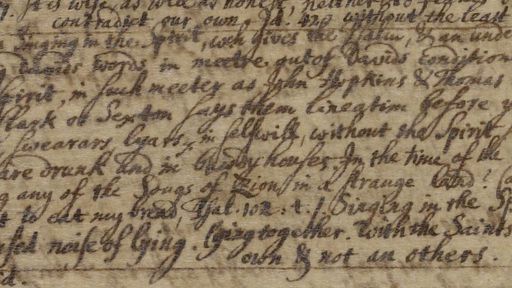 It is wise, as well as honest, neither to
contradict our own. Id. 429 without the least
singing in the Spirit, wch gives the & an unde
Davids words in meetre, out of Davids condition
spirit, in such meeter as John Hopkins & Thomas
Clark or Sexton says them lineatim before y
swearars, lyars, in selfwill, without the Spirit,
are drunk and in bawdy houses, In the time of the
g any of the Songs of Zion in a strange land?
t to eat my bread, Psal. 102. 4. / Singing in the Sp
sed noise of lying. lying together. With the Saints
own & not an others.
id.